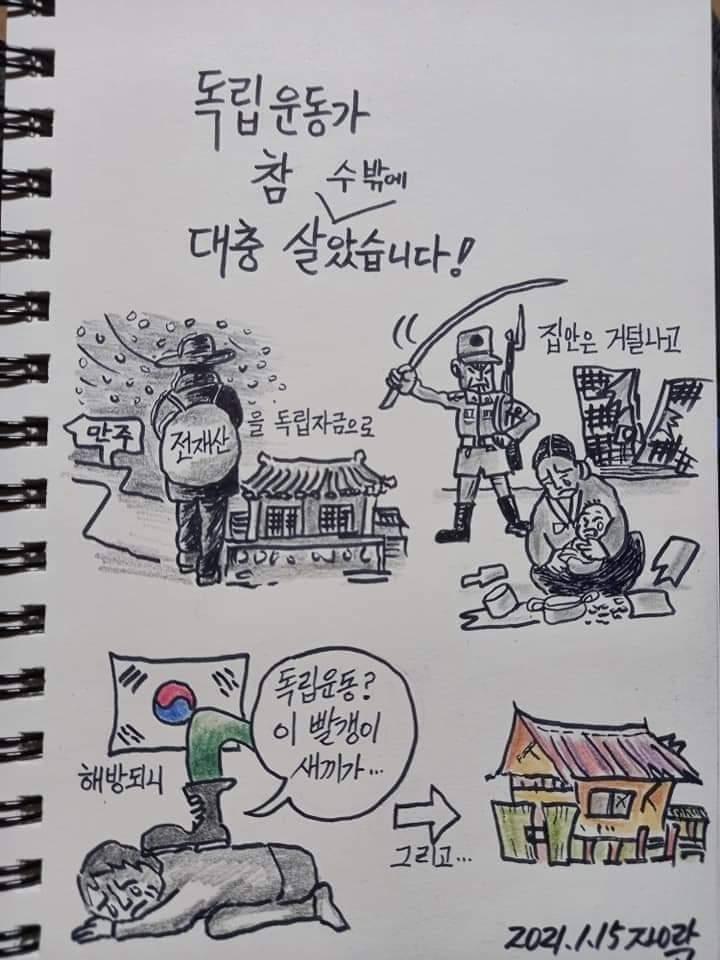 독립운동가
참 수밖에
대충 살았습니다!
만주
전재산
을 독립자금으로
집안은 거덜나고
해방되니
독립운동?
이 빨갱이
새끼가...
그리고...
2021.1.15